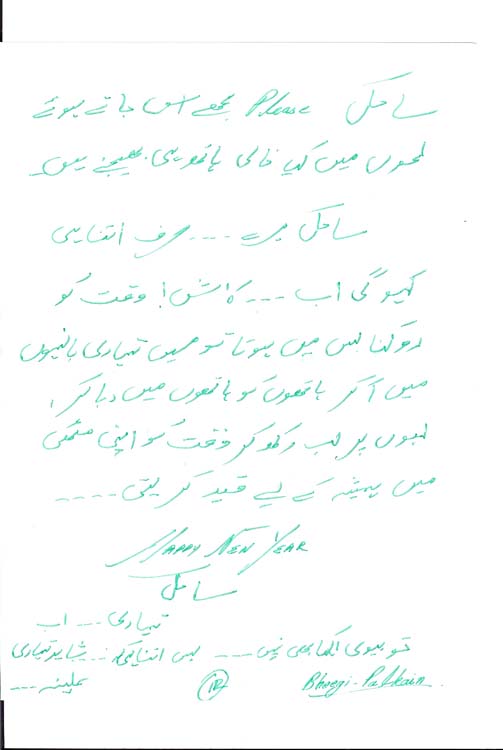 ساحل Please مجھے اس جاتے ہوئے
لمحوں میں کیا خالی ہاتھ ہی بھیجنے ہیں۔
ساحل میرے --- صرف اتنا ہی
کہوں گی اب --- کاش! وقت کو
روکنا بس میں ہوتا تو میں تمہاری بانہوں
میں آکر ہاتھوں کو ہاتھوں میں دبا کر،
لبوں پر لب رکھ کر وقت کو اپنی مٹھی
میں ہمیشہ کے لیے قید کر لیتی ----
HAPPY NEW YEAR
ساحل
تمہاری --- اب
تو بیوی لکھا بھی نہیں --- بس اتنا کہ --- شاید تمہاری
Bheegi-Palkain